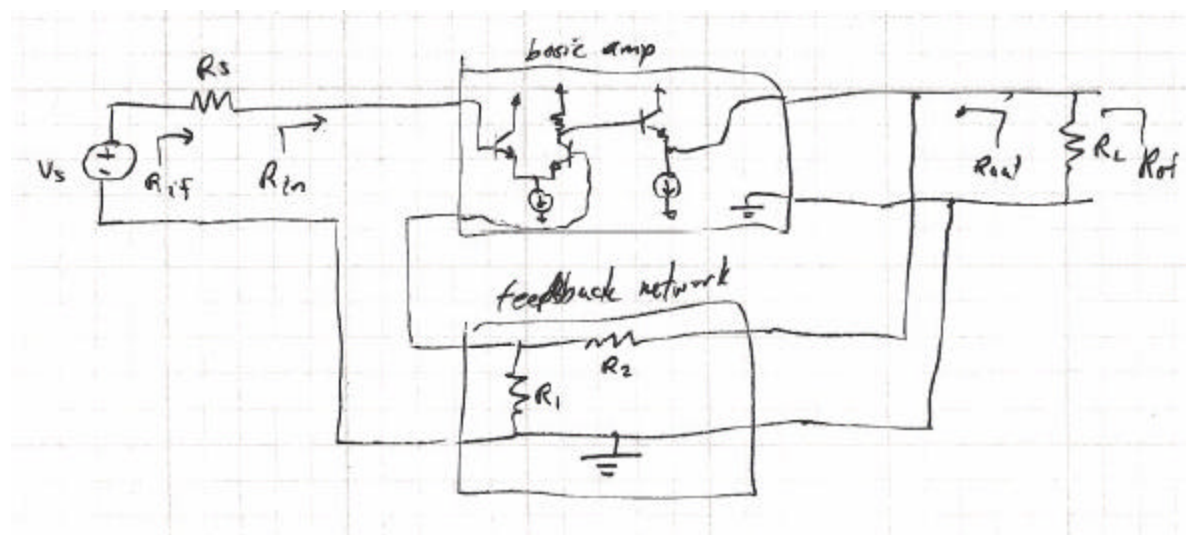 basic amp
Rs
Vs
+
-
Rif
Rin
Rout
RL
Rof
feedback network
R2
R1